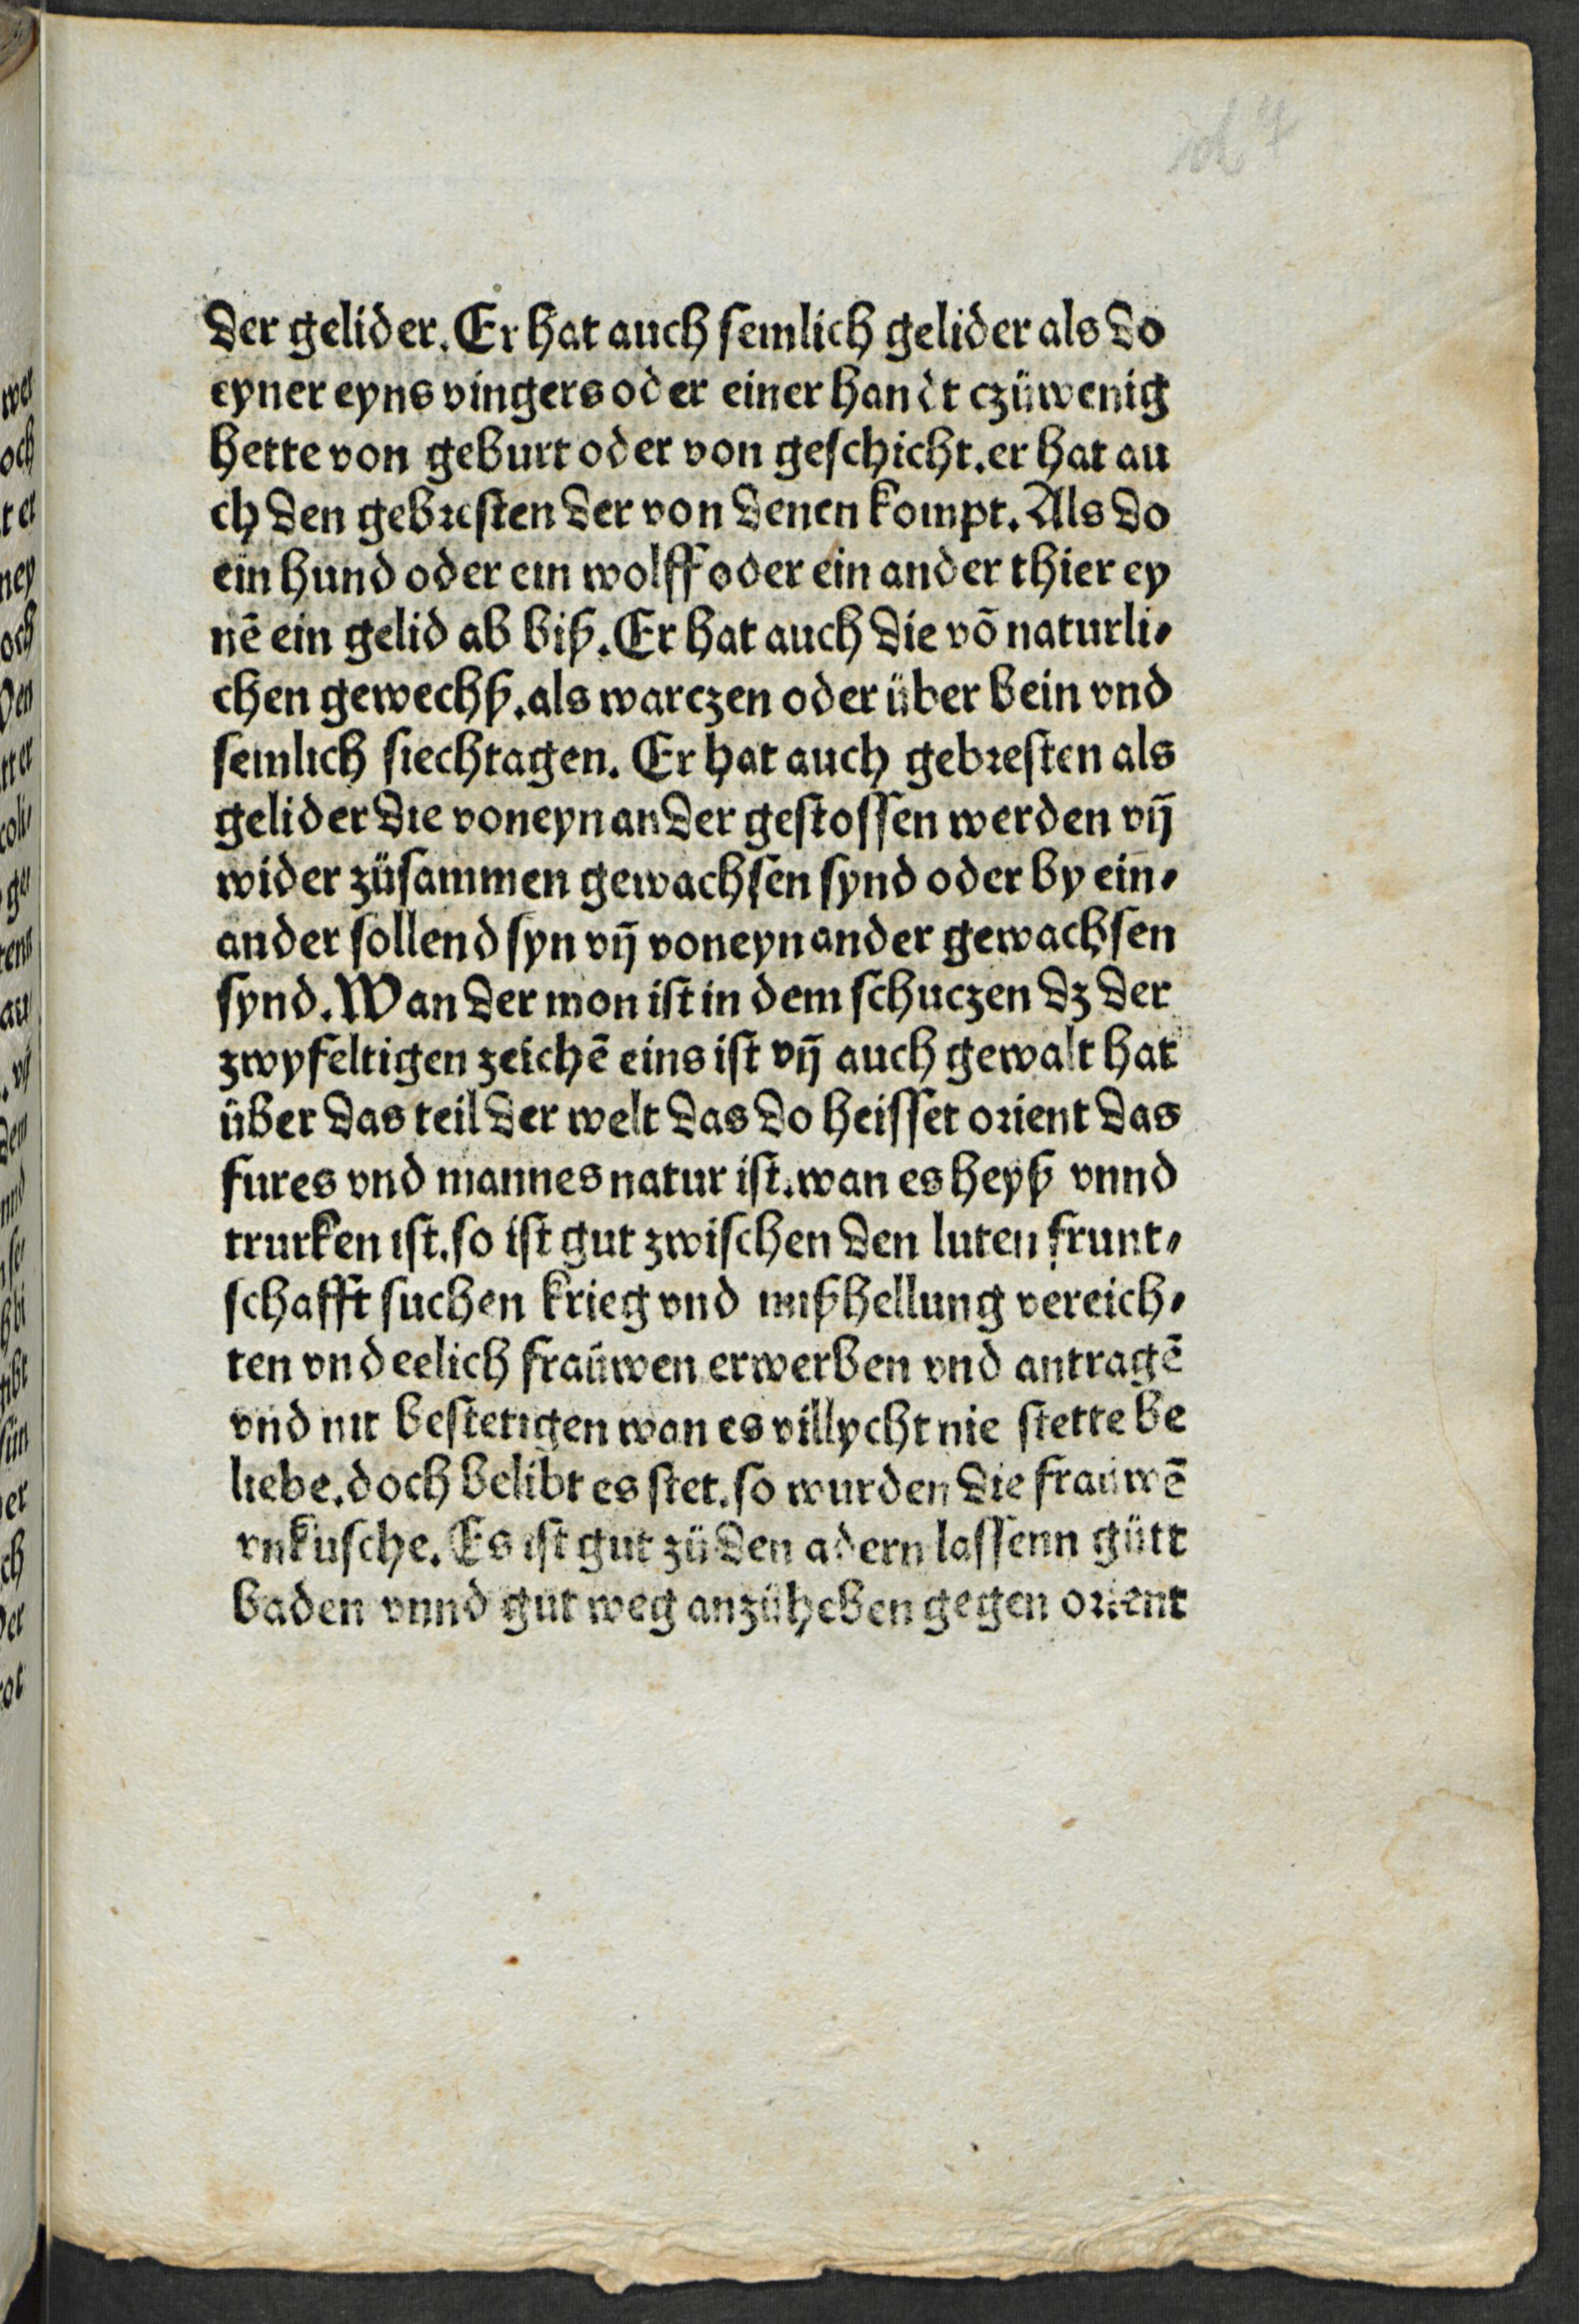 der gelider. Er hat auch semlich gelider als do
eyner eyns vingers oder einer handt czüwenig
hette von geburt oder von geschicht. er hat au
ch den gebresten der von denen kompt. Als do
ein hund oder ein wolff oder ein ander thier ey
nē ein gelid ab biß. Er hat auch die vō naturli⸗
chen gewechß. als warczen oder über bein vnd
semlich siechtagen. Er hat auch gebresten als
gelider die voneynander gestossen werden vn̄
wider züsammen gewachsen synd oder by ein⸗
ander sollend syn vn̄ voneynander gewachsen
synd. Wan der mon ist in dem schuczen dz der
zwyfeltigen zeichē eins ist vn̄ auch gewalt hat
über das teil der welt das do heisset orient das
fures vnd mannes natur ist. wan es heyß vnnd
trurken ist. so ist gut zwischen den luten frunt⸗
schafft suchen krieg vnd mißhellung vereich⸗
ten vnd eelich fraüwen erwerben vnd antragē
vnd nit bestetigen wan es villycht nie stette be
liebe. doch belibt es stet. so wurden die fraüwē
vnkusche. Es ist gut zü den adern lassenn gütt
baden vnnd gut weg anzüheben gegen orient